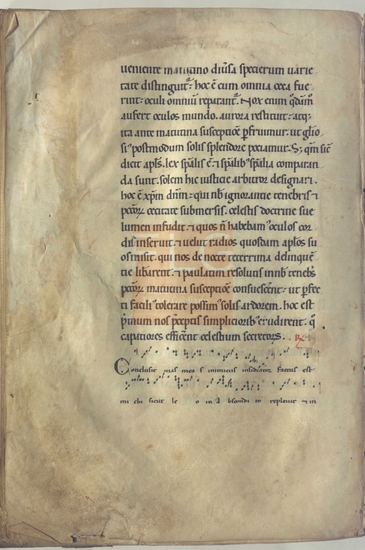 ueniente matutino diũsa specierum uarie
tate distinguit᷑. hoc ẽ cum omnia ceca fue
rint: oculi omniũ reparant᷑. Nox enim q̃dam̃
aufert oculos mundo. aurora restituit: atq;
ita ante matutina susceptiõe ꝑfruimur. ut glio
si postmodum solis splendore potiamur. S; qm̃ sic̃
dicit apl̃s. lex sp̃alis ẽ: ⁊ sp̃alib; sp̃alia comparan
da sunt. solem hic iusticie arbitror designari.
hoc ẽ xp̃m dñm: qui nb̃ ignorantie tenebris ⁊
pcc̃oꝝ cecitate submersis. celestis doctrine sue
lumen infudit. ⁊ quos ñ habebam᷒ oculos cor
dis inseruit: ⁊ uelut radios quosdam apl̃os su
os misit. qui nos de nocte teterrima delinquẽ
tie libarent. ⁊ paulatim resolutis in nb̃ teneb̃s
pcc̃oꝝ matutina susceptiõe consuescent: ut ꝑfec
ti facili᷒ tolerare possim᷒ solis ardorem. hoc est
p̃mum nos p̃ceptis simpliciorib; erudirent. q̃
capaciores efficẽnt celestium secretorꝝ. R̃
Conclusit uias meas inimicus insidiator factus est
mi chi sicut le o in abscondi to repleuit ⁊ in